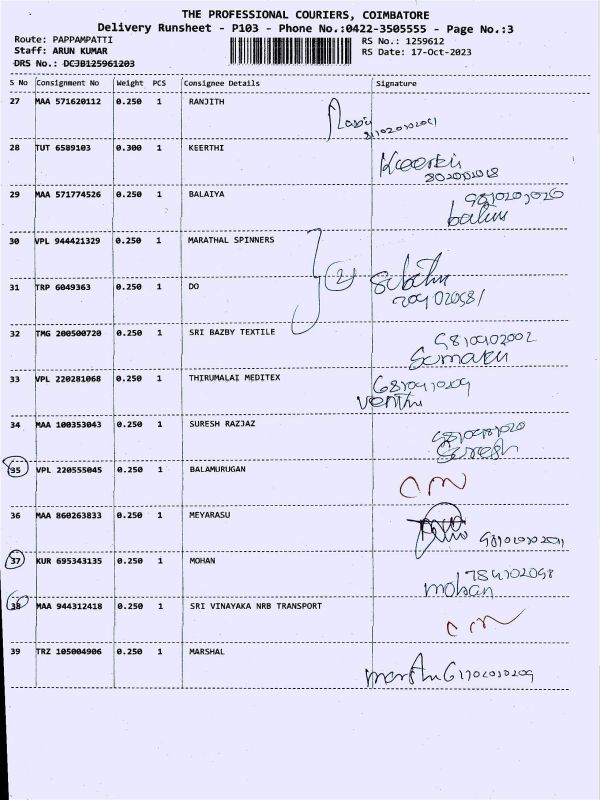 THE PROFESSIONAL COURIERS, COIMBATORE
Delivery Runsheet - P103 - Phone No.:0422-3505555 - Page No.:3
Route: PAPPAMPATTI RS No.: 1259612
Staff: ARUN KUMAR RS Date: 17-Oct-2023
DRS No.: DCJB125961203
S No Consignment No Weight PCS Consignee Details Signature
27 MAA 571620112 0.250 1 RANJITH
28 TUT 6589103 0.300 1 KEERTHI
Keerthi
29 MAA 571774526 0.250 1 BALAIYA
30 VPL 944421329 0.250 1 MARATHAL SPINNERS
2
31 TRP 6049363 0.250 1 DO
32 TMG 200500720 0.250 1 SRI BAZBY TEXTILE
33 VPL 220281068 0.250 1 THIRUMALAI MEDITEX
34 MAA 100353043 0.250 1 SURESH RAZJAZ
Suresh
35 VPL 220555045 0.250 1 BALAMURUGAN
36 MAA 860263833 0.250 1 MEYARASU
37 KUR 695343135 0.250 1 MOHAN
mohan
38 MAA 944312418 0.250 1 SRI VINAYAKA NRB TRANSPORT
39 TRZ 105004906 0.250 1 MARSHAL